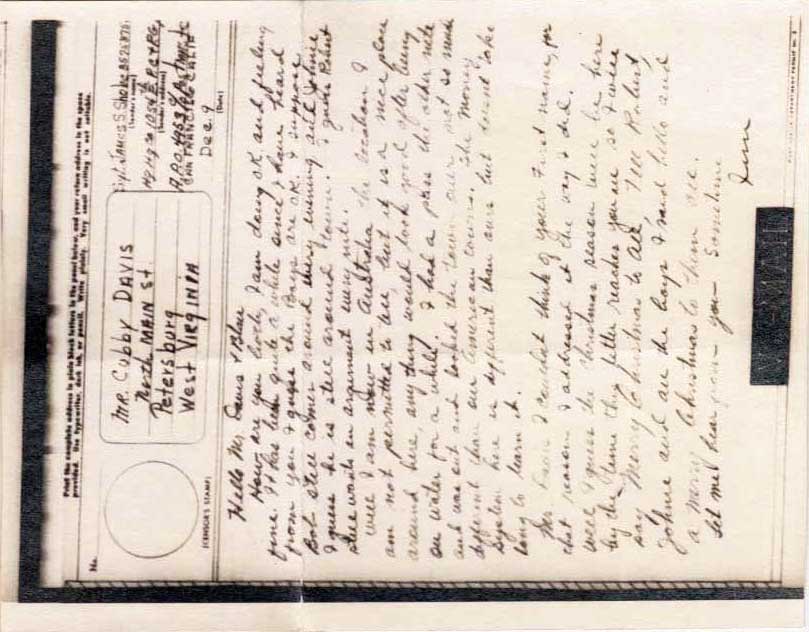 Print the complete address in plain block letters in the panel below, and your return address in the space
provided. Use typewriter, dark ink, or pencil. Write plainly. Very small writing is not suitable.
No.
(CENSOR'S STAMP)
MR. CUBBY DAVIS
North MAIN St
Petersburg
West VIRGINIA
Sgt. JAMES S.
(Sender's name)
(Sender's address)
A.P.O.
SAN FRANCISCO CALIF
Dec. 9
(Date)
Hello Mr. Davis & Blair
How are you both, I am doing ok and feeling
fine. It has been quite a while since I have heard
from you I guess the Boys are ok. I suppose
Bob still comes around every evening and Johnie
I guess he is still around town. I guess Robert
still wants an argument every nite.
Well I am now in Australia the location I
am not permitted to tell but it is a nice place
around here, any thing would look good after being
on water for a while. I had a pass the other nite
and was out and looked the town over not so much
different than our American towns. The money
system here is different than ours but doesnt take
long to learn it.
Mr. Davis I couldnt think of your first name, for
that reason I addressed it the way I did.
Well I guess the Christmas season will be here
by the time this letter reaches you so I will
say Merry Christmas to all. Tell Robert,
Johnie and all the boys I said hello and
a merry Christmas to them all.
Let me hear from you sometime
Jim
V-MAIL